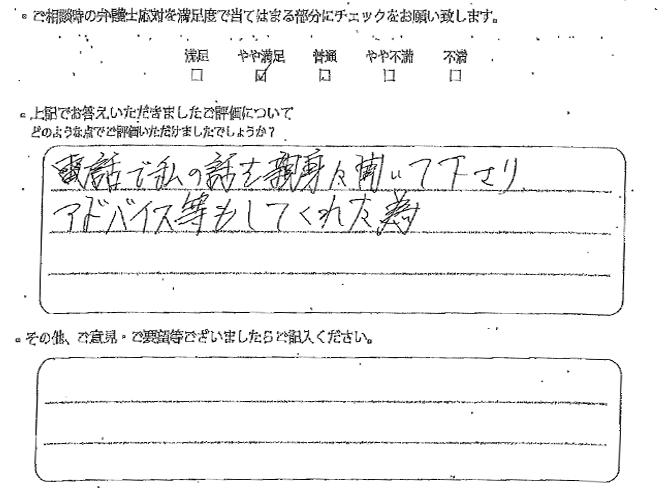 。ご相談時の弁護士応対を満足度で当てはまる部分にチェックをお願い致します。
満足 やや満足 普通 やや不満 不満
□ ☑ □ □ □
。上記でお答えいただきましたご評価について
どのような点でご評価いただけましたでしょうか？
電話で私の話を親身に聞いて下さり
アドバイス等もしてくれた為
。その他、ご意見・ご要望等ございましたらご記入ください。